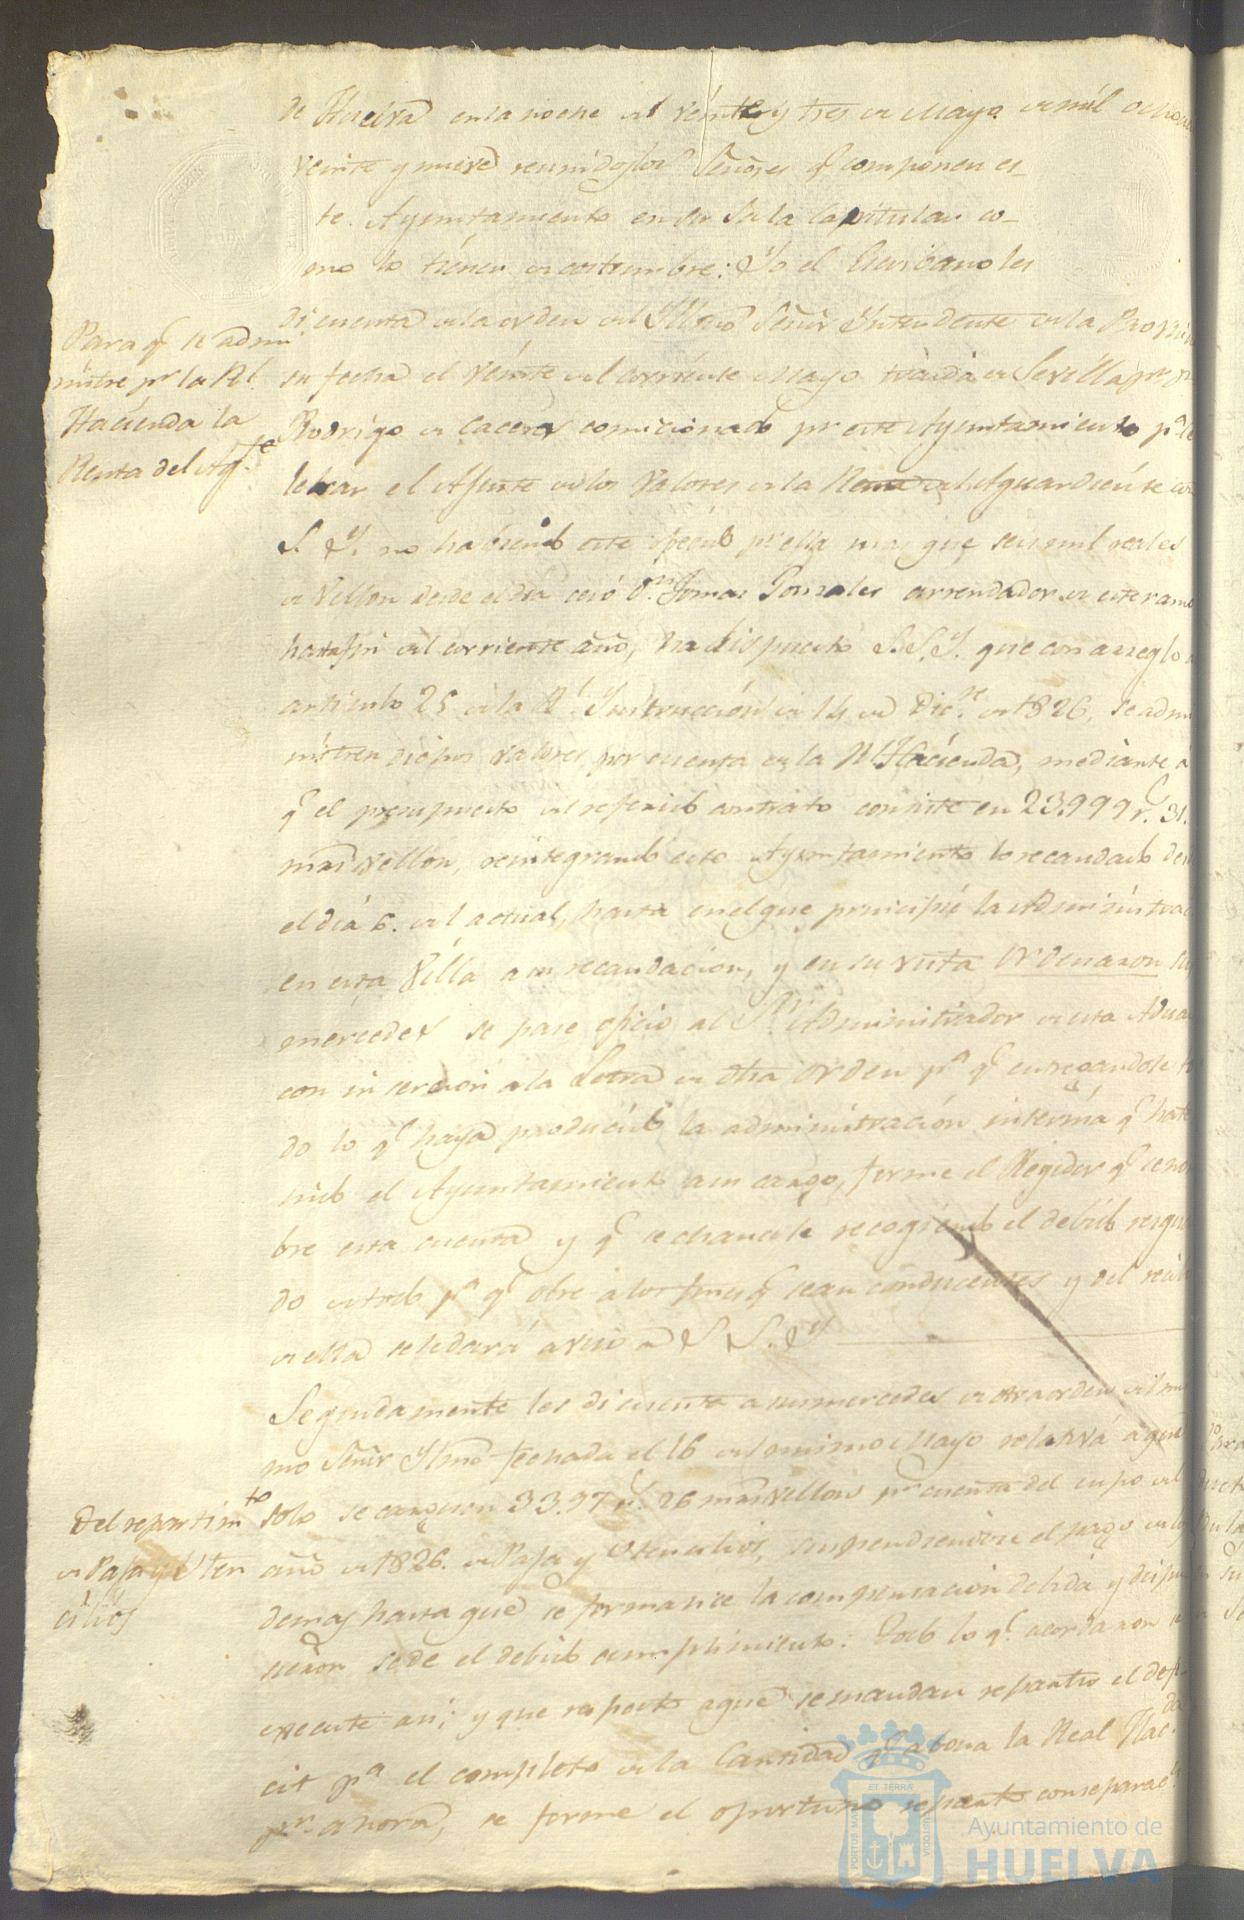 de Huelva en la noche del veinte y tres de Mayo de mil ochoc.
veinte y nueve reunidos los Señores q.e componen es-
te Ayuntamiento en su Sala Capitular co-
mo lo tienen de costumbre: Yo el Escribano les
di cuenta de la orden del Yllmo Señor Yntendente de la Provin
su fecha el veinte del corriente Mayo traida de Sevilla por
Rodrigo de Caceres comicionado pr este Ayuntamiento pa. ce
lebrar el Ajuste de los Valores de la Renta del Aguardiente con
S. Y. no habiendo este ofrecido pr ella mas que seis mil reales
de Vellon desde el dia cesó Dn. Tomas Gonzales arrendador de este ramo
hasta fin del corriente año, ha dispuesto S.S.Y. que con arreglo a
articulo 25 de la Rl. Ynstruccion de 14 de Dic.re de 1826, se admi
nistren dichos valores por cuenta de la Rl Hacienda, mediante á
q.e el presupuesto del referido contrato consiste en 23.999 r.s 31.
mrs vellon, reintegrando este Ayuntamiento lo recaudado des
el dia 6. del actual, hasta en el que principie la Administrac
en esta Villa a su recaudacion, y en su vista Ordenaron sus
mercedes se pase oficio al S.or Administrador de esta Adua
con insercion a la Letra de dha orden pa q.e entregandole to
do lo q.e haya producido la administración interina q.e ha te
nido el Ayuntamiento a su cargo, forme el Regidor q.e se nom
bre esta cuenta y q.e se chancele recogiendo el debido resgua
do de todo pa q.e obre a los fines q.e sean conducentes y del
de ella se le dará aviso a S. S. Y.
Segundamente les di cuenta a sus mercedes de otra orden del mis
mo Señor Yllmo fechada el 16 del mismo Mayo relativa á que
solo se carguen 33.97 r.s 26 mrs vellon pr cuenta del cupo del
año de 1826. de Paja y Utencilios, suspendiendose el pago de lo
demas hasta que se formalice la compensacion debida y
se de el debido cumplimiento: Todo lo q.e acordaron se
execute asi; y que respecto a que se mandan repartir el defi
cit pa el completo de la Cantidad q.e abona la Real Hac.da
pr. ahora, se forme el oportuno reparto con separac.n
Para q.e se admi
nistre pr la Rl.
Hacienda la
Renta del Ag.te
Del repartim.to
de Paja y Uten
cilios
ET TERRÆ
PORTUS MARIS
CUSTODIA
Ayuntamiento de
HUELVA